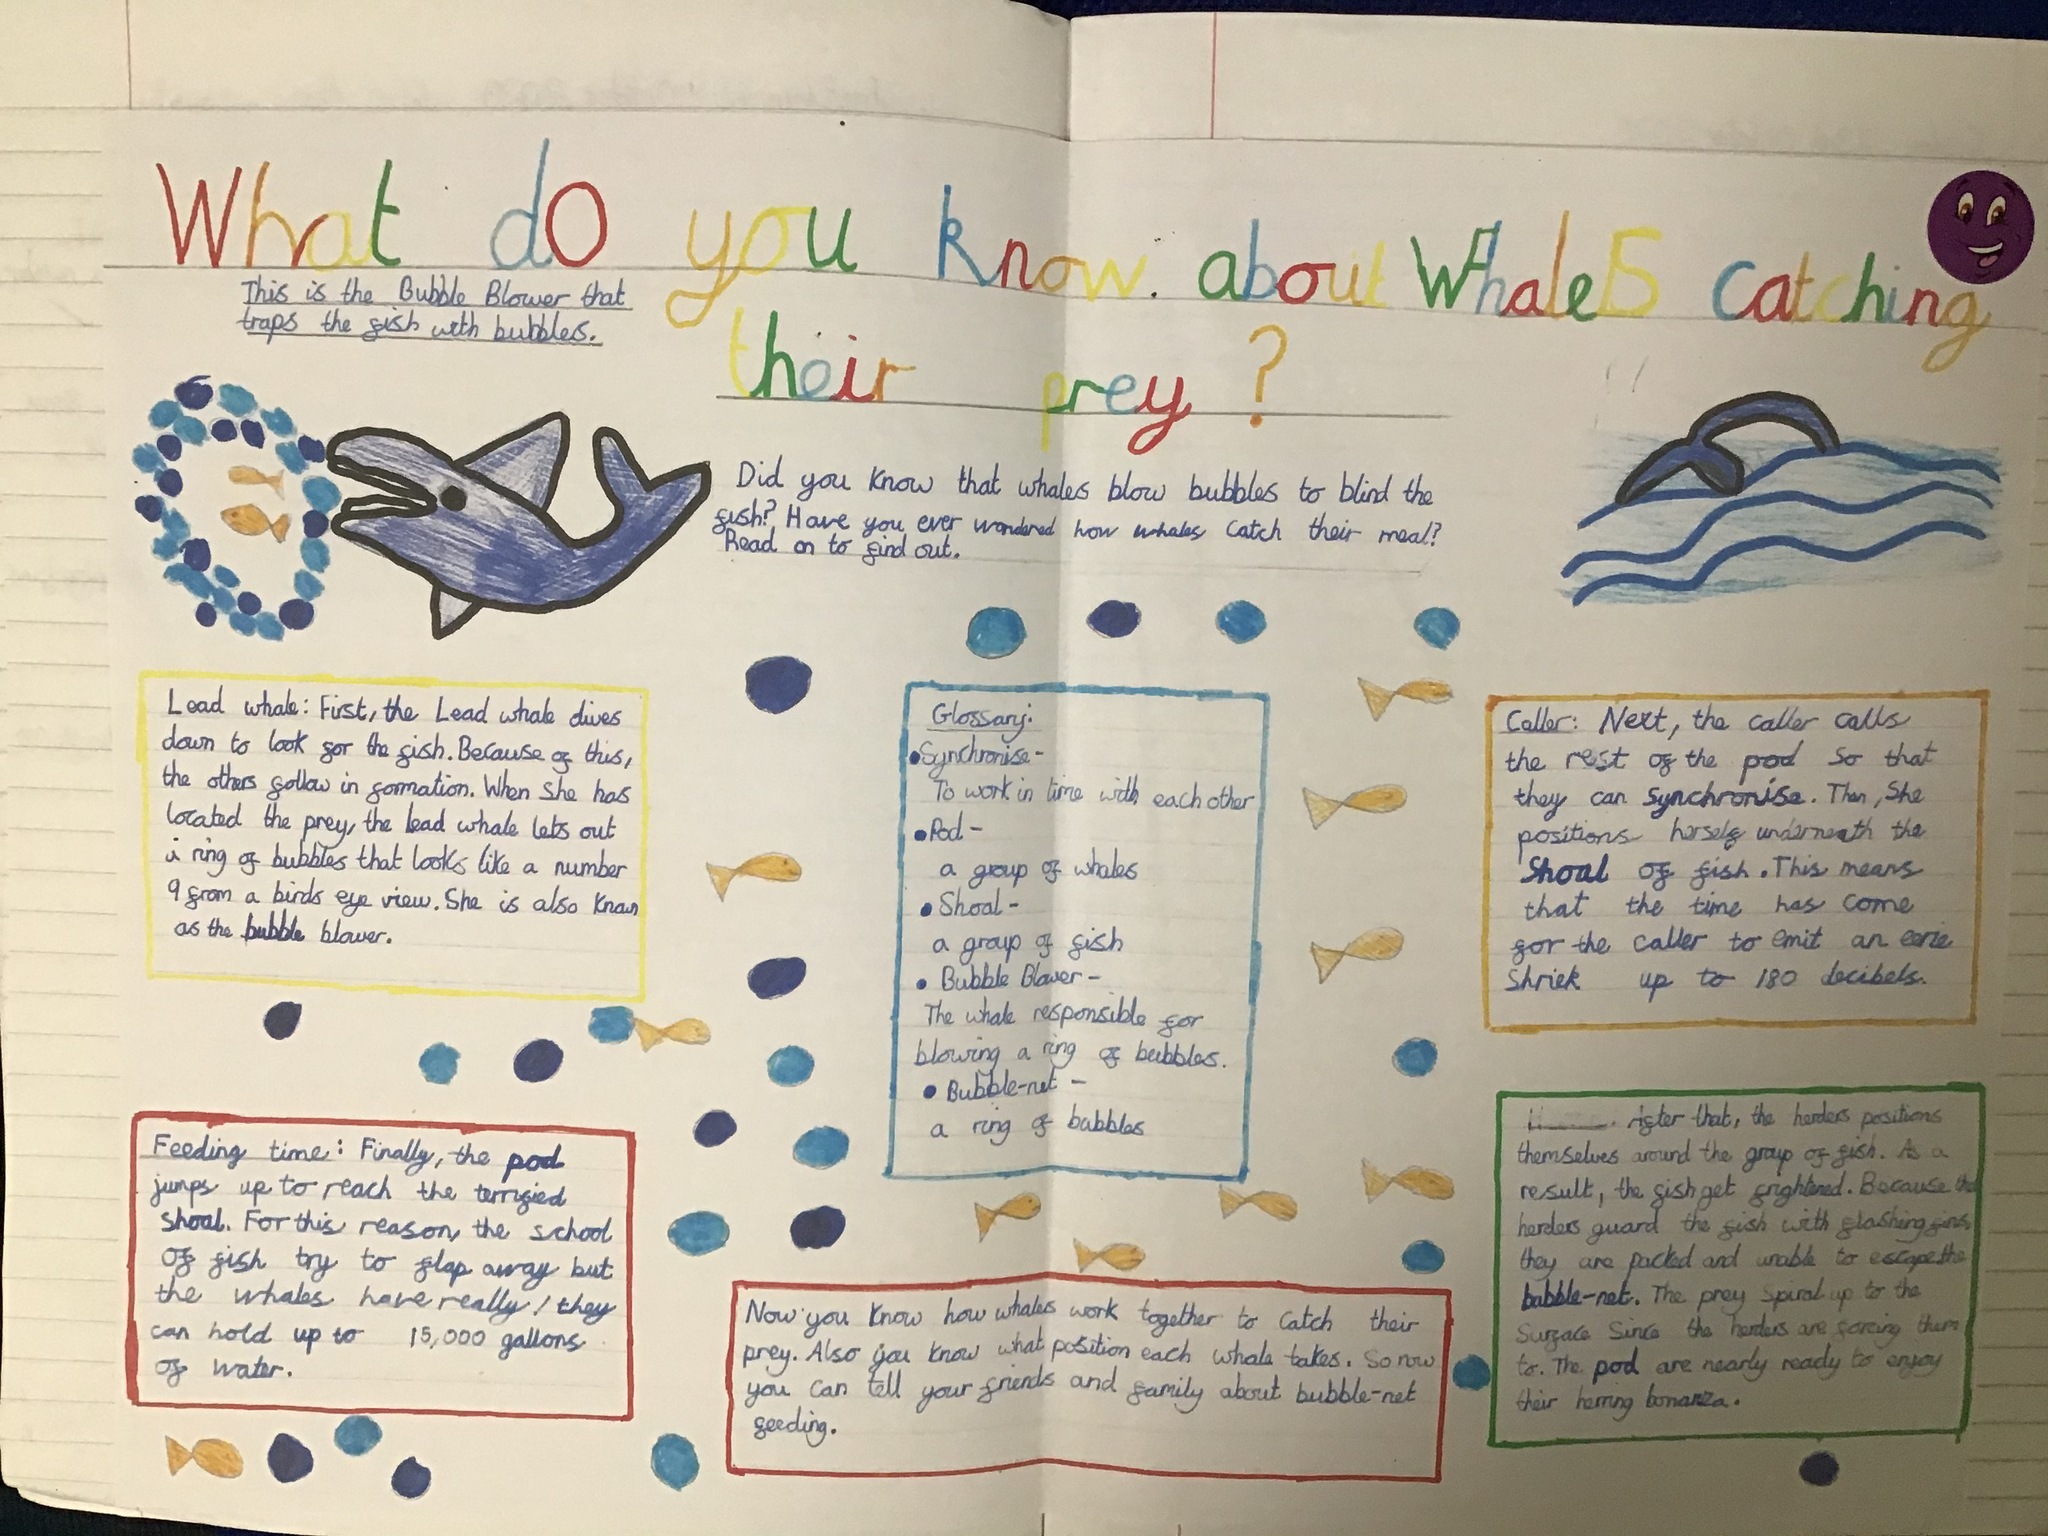 What do you know about Whales catching
their prey ?
This is the Bubble Blower that
traps the fish with bubbles.
Did you know that whales blow bubbles to blind the
fish? Have you ever wondered how whales catch their meal?
Read on to find out.
Lead whale: First, the Lead whale dives
down to look for the fish. Because of this,
the others follow in formation. When She has
located the prey, the lead whale lets out
a ring of bubbles that looks like a number
9 from a birds eye view. She is also known
as the bubble blower.
Glossary:
•Synchronise-
To work in time with each other
•Pod-
a group of whales
•Shoal-
a group of fish
•Bubble Blower-
The whale responsible for
blowing a ring of bubbles.
•Bubble-net-
a ring of bubbles
Caller: Next, the caller calls
the rest of the pod So that
they can synchronise. Then, She
positions herself underneath the
Shoal of fish. This means
that the time has come
for the caller to emit an eerie
Shriek up to 180 decibels.
After that, the herders positions
themselves around the group of fish. As a
result, the fish get frightened. Because the
herders guard the fish with flashing fins
they are packed and unable to escape the
bubble-net. The prey spiral up to the
Surface Since the herders are forcing them
to. The pod are nearly ready to enjoy
their herring bonanza.
Feeding time: Finally, the pod
jumps up to reach the terrified
Shoal. For this reason, the school
of fish try to flap away but
the whales have really! they
can hold up to 15,000 gallons
of water.
Now you know how whales work together to catch their
prey. Also you know what position each whale takes. So now
you can tell your friends and family about bubble-net
feeding.